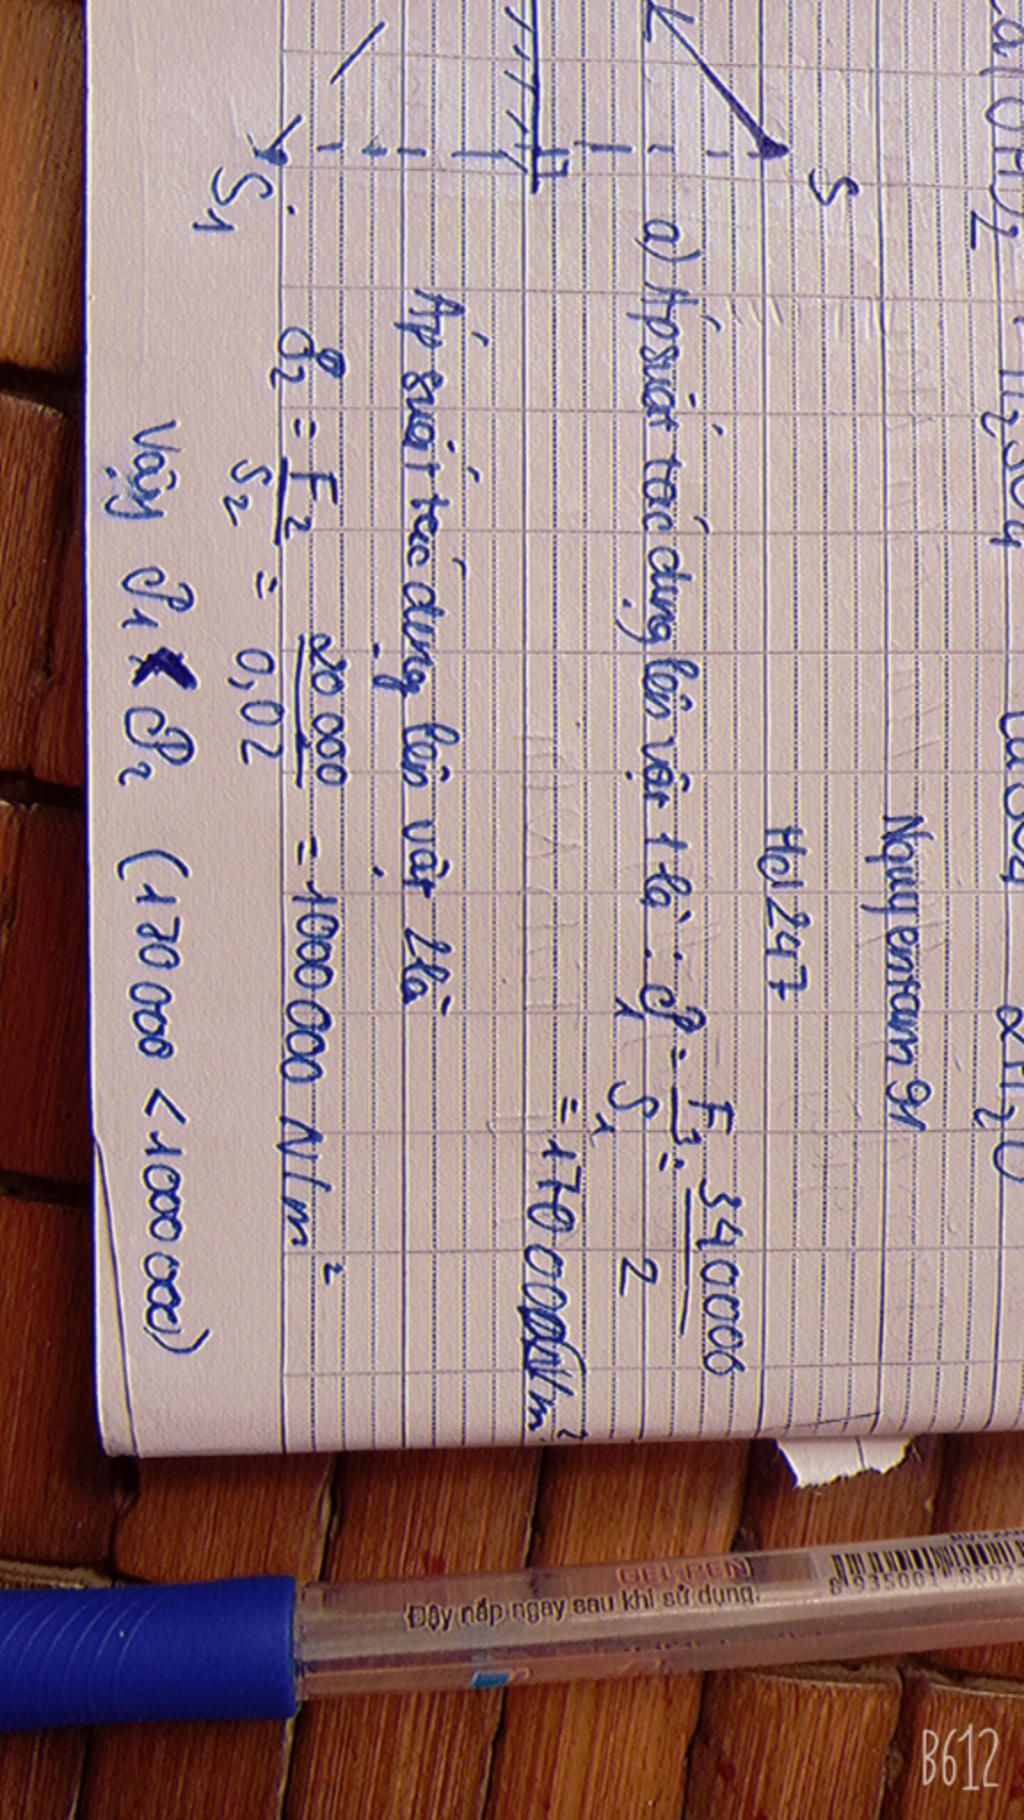 Nguyentam 91
Hd 247
S
a) Áp suất tác dụng lên vật 1 là : P1 = F1/S1 = 340000/2
= 170 000 N/m²
Áp suất tác dụng lên vật 2 là
P2 = F2/S2 = 20 000/0,02 = 1000 000 N/m²
S1
Vậy P1 < P2 (170 000 < 1000 000)
GEL PEN
Đậy nắp ngay sau khi sử dụng.
B612